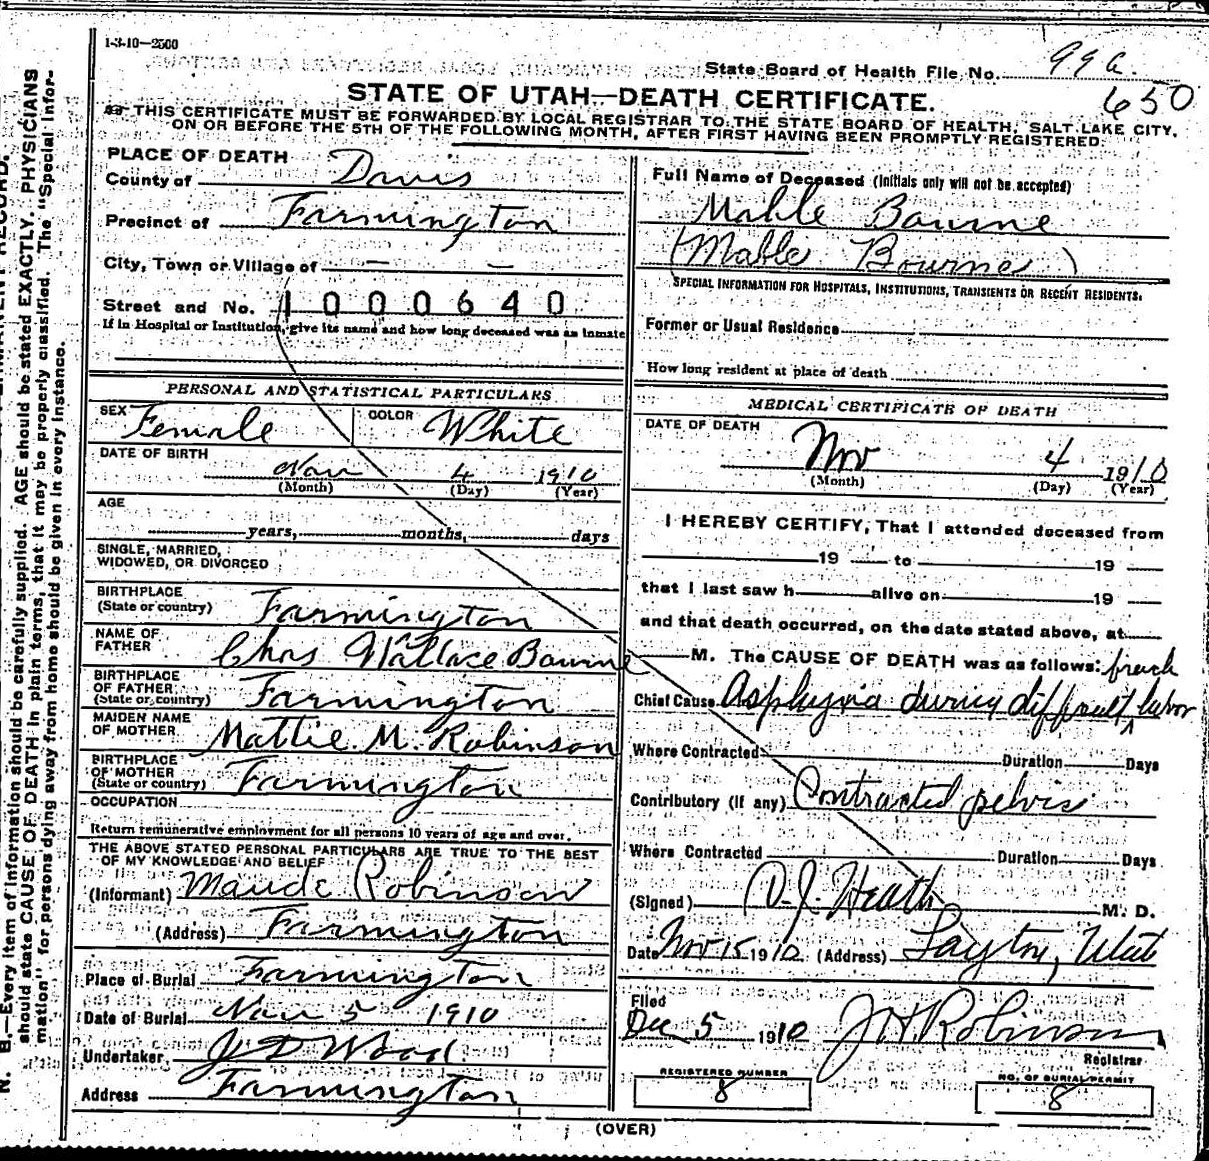 1-3-10—2500
State Board of Health File No. 99a.
650
STATE OF UTAH—DEATH CERTIFICATE.
THIS CERTIFICATE MUST BE FORWARDED BY LOCAL REGISTRAR TO THE STATE BOARD OF HEALTH, SALT LAKE CITY,
ON OR BEFORE THE 5TH OF THE FOLLOWING MONTH, AFTER FIRST HAVING BEEN PROMPTLY REGISTERED.
N. B.—Every item of information should be carefully supplied. AGE should be stated EXACTLY. PHYSICIANS
should state CAUSE OF DEATH in plain terms, that it may be properly classified. The "Special Infor-
mation" for persons dying away from home should be given in every instance.
PLACE OF DEATH
County of Davis
Precinct of Farmington
City, Town or Village of — —
Street and No. 1000640
If in Hospital or Institution, give its name and how long deceased was as inmate
PERSONAL AND STATISTICAL PARTICULARS
SEX Female COLOR White
DATE OF BIRTH
Nov 4 1910
(Month) (Day) (Year)
AGE
years, months, days
SINGLE, MARRIED,
WIDOWED, OR DIVORCED
BIRTHPLACE
(State or country) Farmington
NAME OF
FATHER Chas Wallace Bourne
BIRTHPLACE
OF FATHER
(State or country) Farmington
MAIDEN NAME
OF MOTHER Mattie M. Robinson
BIRTHPLACE
OF MOTHER
(State or country) Farmington
OCCUPATION
Return remunerative employment for all persons 10 years of age and over.
THE ABOVE STATED PERSONAL PARTICULARS ARE TRUE TO THE BEST
OF MY KNOWLEDGE AND BELIEF
(Informant) Maude Robinson
(Address) Farmington
Place of Burial Farmington
Date of Burial Nov 5 1910
Undertaker J D Wood
Address Farmington
Full Name of Deceased (Initials only will not be accepted)
Mable Bourne
(Mable Bourne)
SPECIAL INFORMATION FOR HOSPITALS, INSTITUTIONS, TRANSIENTS OR RECENT RESIDENTS.
Former or Usual Residence
How long resident at place of death
MEDICAL CERTIFICATE OF DEATH
DATE OF DEATH
Nov 4 1910
(Month) (Day) (Year)
I HEREBY CERTIFY, That I attended deceased from
19 to 19
that I last saw h alive on 19
and that death occurred, on the date stated above, at
M. The CAUSE OF DEATH was as follows: breech
Chief Cause Asphyxia during difficult labor
Where Contracted Duration Days
Contributory (if any) Contracted pelvis
Where Contracted Duration Days
(Signed) D. J. Heath M. D.
Date Nov 15 1910. (Address) Layton, Utah
Filed
Dec 5 1910 J H Robinson
Registrar
REGISTERED NUMBER
8
NO. OF BURIAL PERMIT
8
(OVER)